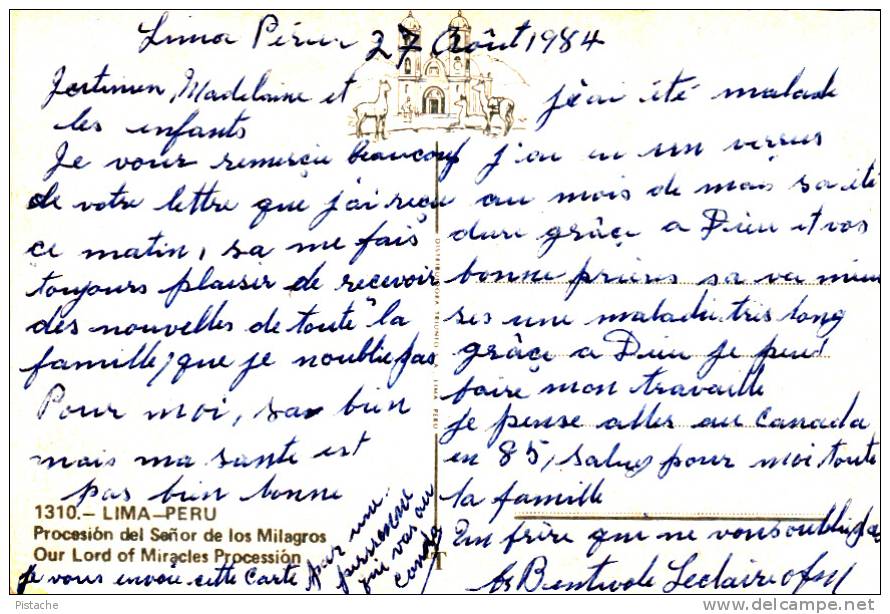 Lima Pérou 27 Août 1984
Madelaine et
les enfants
Je vous remerçie beaucoup
de votre lettre que j'ai reçu
ce matin, sa me fais
toujours plaisir de recevoir
des nouvelles de toute la
famille, que je noublie pas
Pour moi, sa bien
mais ma sante est
pas bien bonne
1310.- LIMA-PERU
Procesión del Señor de los Milagros
Our Lord of Miracles Procession
je vous envoie cette carte par une
personne
qui vas au
Canada
DISTRIBUIDORA LIMA PERU
j'ai été malade
j'ai eu un verus
au mois de mais sa été
dure grâçe a Dieu et vos
bonne prières sa va mieux
ses une maladie tris long
grâçe a Dieu je peud
faire mon travaille
je pense aller au Canada
en 85, salue pour moi toute
la famille
Un frère qui ne vous oublie pas
Leclaire ofm
Pistache
www.delcampe.net